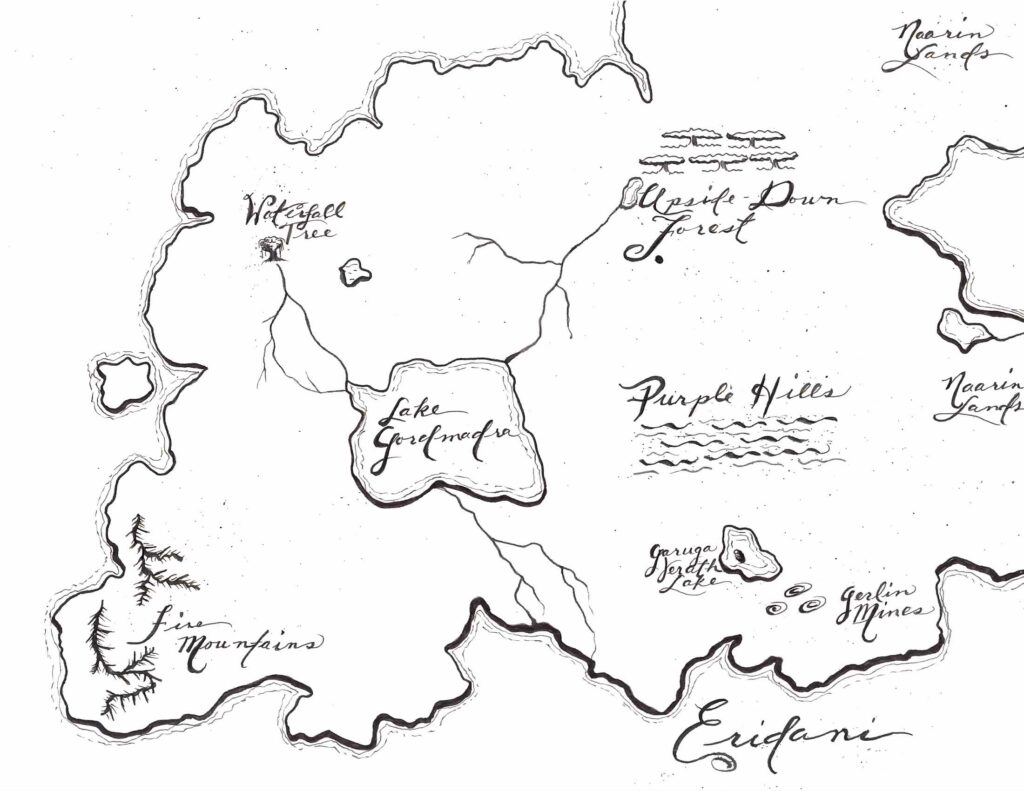 Naarin
Lands
Waterfall
Tree
Upside-Down
Forest
Purple Hills
Naarin
Lands
Lake
Gordmadra
Garuga
Lake
Gerlin
Mines
Fire
Mountains
Eridani